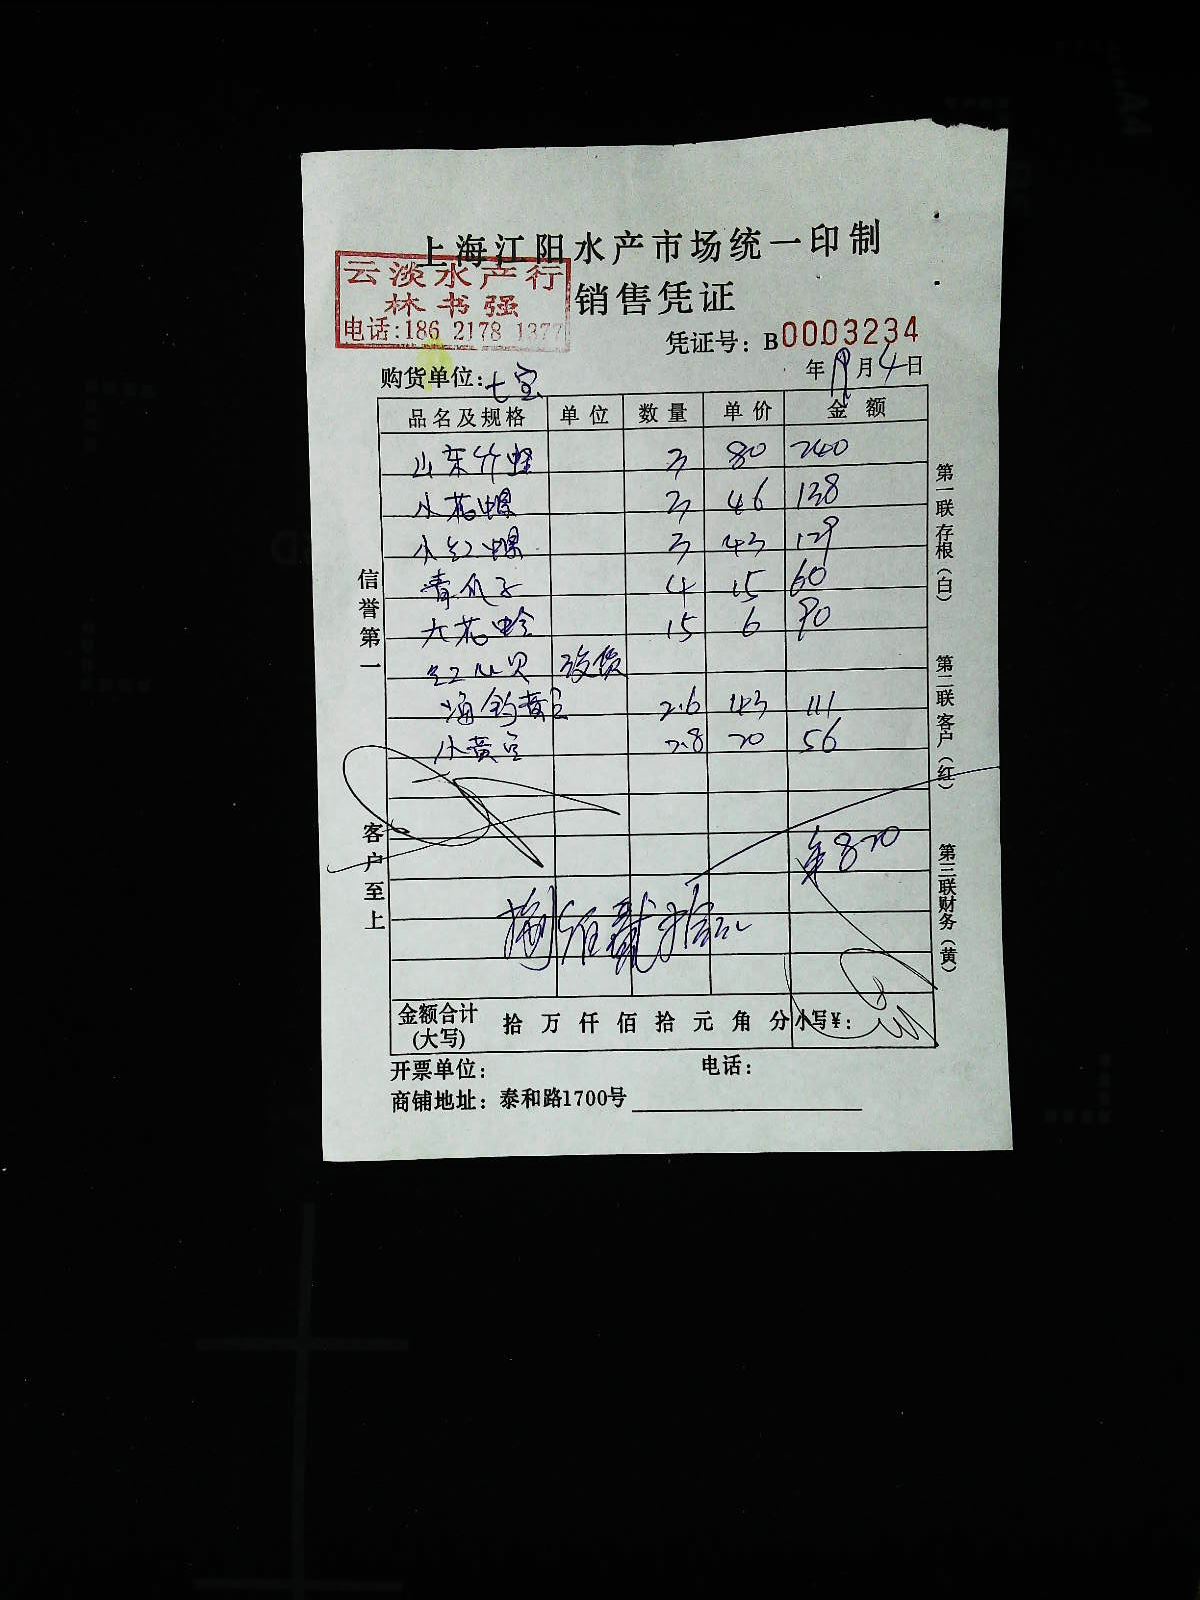 上海江阳水产市场统一印制
云淡水产行
林书强
电话:186 2178 1377
销售凭证
凭证号：B0003234
购货单位：七宝
年 月4日
品名及规格 单位 数量 单价 金额
山东竹蛏 3 80 240
小花螺 3 46 138
小红螺 3 43 129
青瓜子 4 15 60
大花蛤 15 6 90
红心贝
海钓黄豆 2.6 43 111
小黄豆 2.8 20 56
820
捌佰贰拾元
金额合计(大写) 拾 万 仟 佰 拾 元 角 分 小写¥：
开票单位： 电话：
商铺地址：泰和路1700号
信誉第一
客户至上
第一联存根(白)
第二联客户(红)
第三联财务(黄)